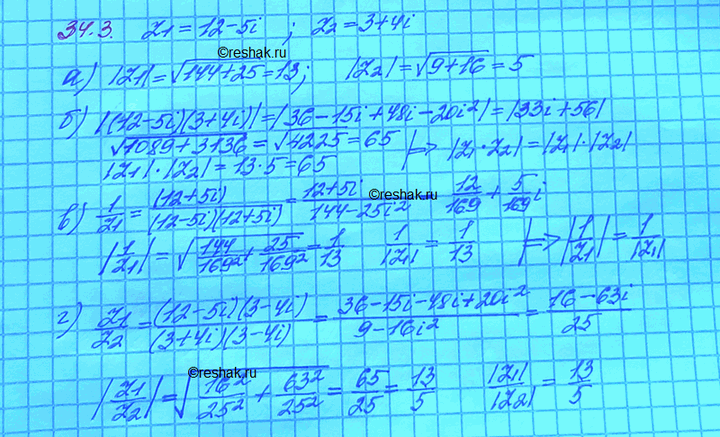 34.3. z1 = 12-5i ; z2 = 3+4i
©reshak.ru
а) |z1| = √(144+25) = 13; |z2| = √(9+16) = 5
б) |(12-5i)(3+4i)| = |36-15i+48i-20i²| = |33i+56|
√(1089+3136) = √4225 = 65
|z1|·|z2| = 13·5 = 65 |=> |z1·z2| = |z1|·|z2|
в) 1/z1 = (12+5i)/((12-5i)(12+5i)) = (12+5i)/(144-25i²) = 12/169 + 5/169 i
©reshak.ru
|1/z1| = √(144/169² + 25/169²) = 1/13 1/|z1| = 1/13 |=> |1/z1| = 1/|z1|
г) z1/z2 = ((12-5i)(3-4i))/((3+4i)(3-4i)) = (36-15i-48i+20i²)/(9-16i²) = (16-63i)/25
©reshak.ru
|z1/z2| = √(16²/25² + 63²/25²) = 65/25 = 13/5 |z1|/|z2| = 13/5